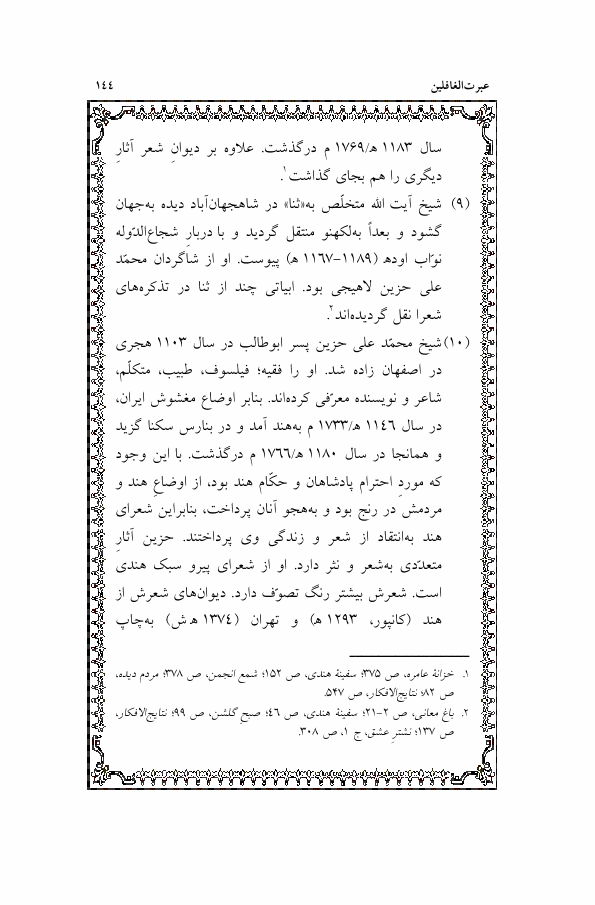 عبرت‌الغافلین ١٤٤
سال ١١٨٣ ﻫ/١٧۶٩ م درگذشت. علاوه بر دیوانِ شعر آثارِ
دیگری را هم بجای گذاشت¹.
(٩) شیخ آیت الله متخلّص به«ثنا» در شاهجهان‌آباد دیده به‌جهان
گشود و بعداً به‌لکهنو منتقل گردید و با دربارِ شجاع‌الدّوله
نوّاب اوده (١١٨٩-١١۶٧ ﻫ) پیوست. او از شاگردان محمّد
علی حزین لاهیجی بود. ابیاتی چند از ثنا در تذکره‌های
شعرا نقل گردیده‌اند².
(١٠) شیخ محمّد علی حزین پسر ابوطالب در سال ١١٠٣ هجری
در اصفهان زاده شد. او را فقیه؛ فیلسوف، طبیب، متکلّم،
شاعر و نویسنده معرّفی کرده‌اند. بنابر اوضاع مغشوش ایران،
در سال ١١٤۶ ﻫ/١٧٣٣ م به‌هند آمد و در بنارس سکنا گزید
و همانجا در سال ١١٨٠ ﻫ/١٧۶۶ م درگذشت. با این وجود
که موردِ احترام پادشاهان و حکّام هند بود، از اوضاعِ هند و
مردمش در رنج بود و به‌هجو آنان پرداخت، بنابراین شعرای
هند به‌انتقاد از شعر و زندگی وی پرداختند. حزین آثارِ
متعدّدی به‌شعر و نثر دارد. او از شعرای پیرو سبک هندی
است. شعرش بیشتر رنگ تصوّف دارد. دیوان‌های شعرش از
هند (کانپور، ١٢٩٣ ﻫ) و تهران (١٣٧٤ ﻫ ش) به‌چاپ
١. خزانۀ عامره، ص ٣٧۵؛ سفینۀ هندی، ص ١۵٢؛ شمع انجمن، ص ٣٧٨؛ مردم دیده،
ص ٨٢؛ نتایج‌الافکار، ص ۵٤٧.
٢. باغ معانی، ص ٢-٢١؛ سفینۀ هندی، ص ٤۶؛ صبحِ گلشن، ص ٩٩؛ نتایج‌الافکار،
ص ١٣٧؛ نشترِ عشق، ج ١، ص ٣٠٨.